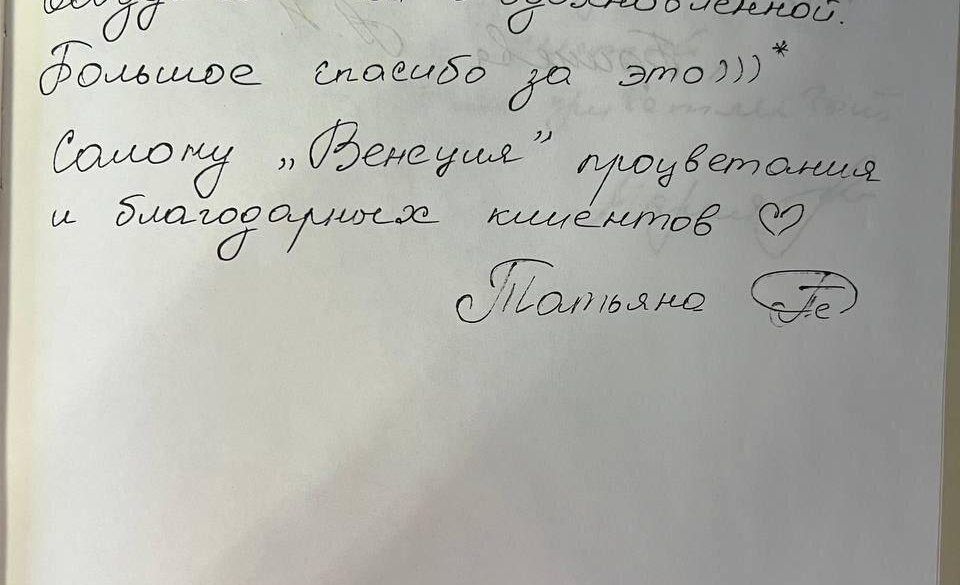 вдохновлённой.
Большое спасибо за это)))*
Салону „Венеция” процветания
и благодарных клиентов ♡
Татьяна Те